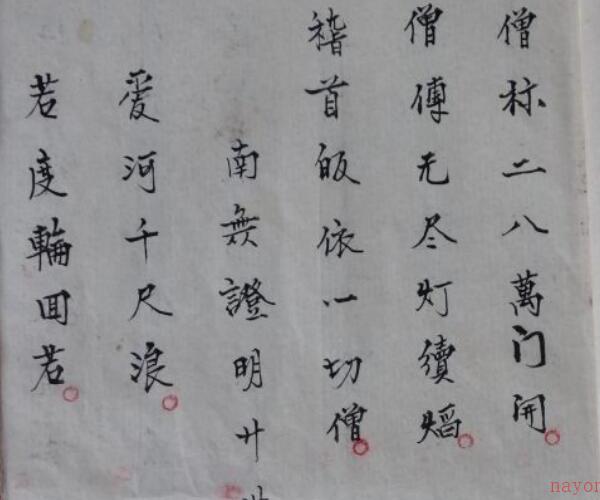 僧称二八萬门开
僧傅无尽灯續焰
稽首皈依一切僧
南無證明廾
爱河千尺浪
若度輪回若
nayor